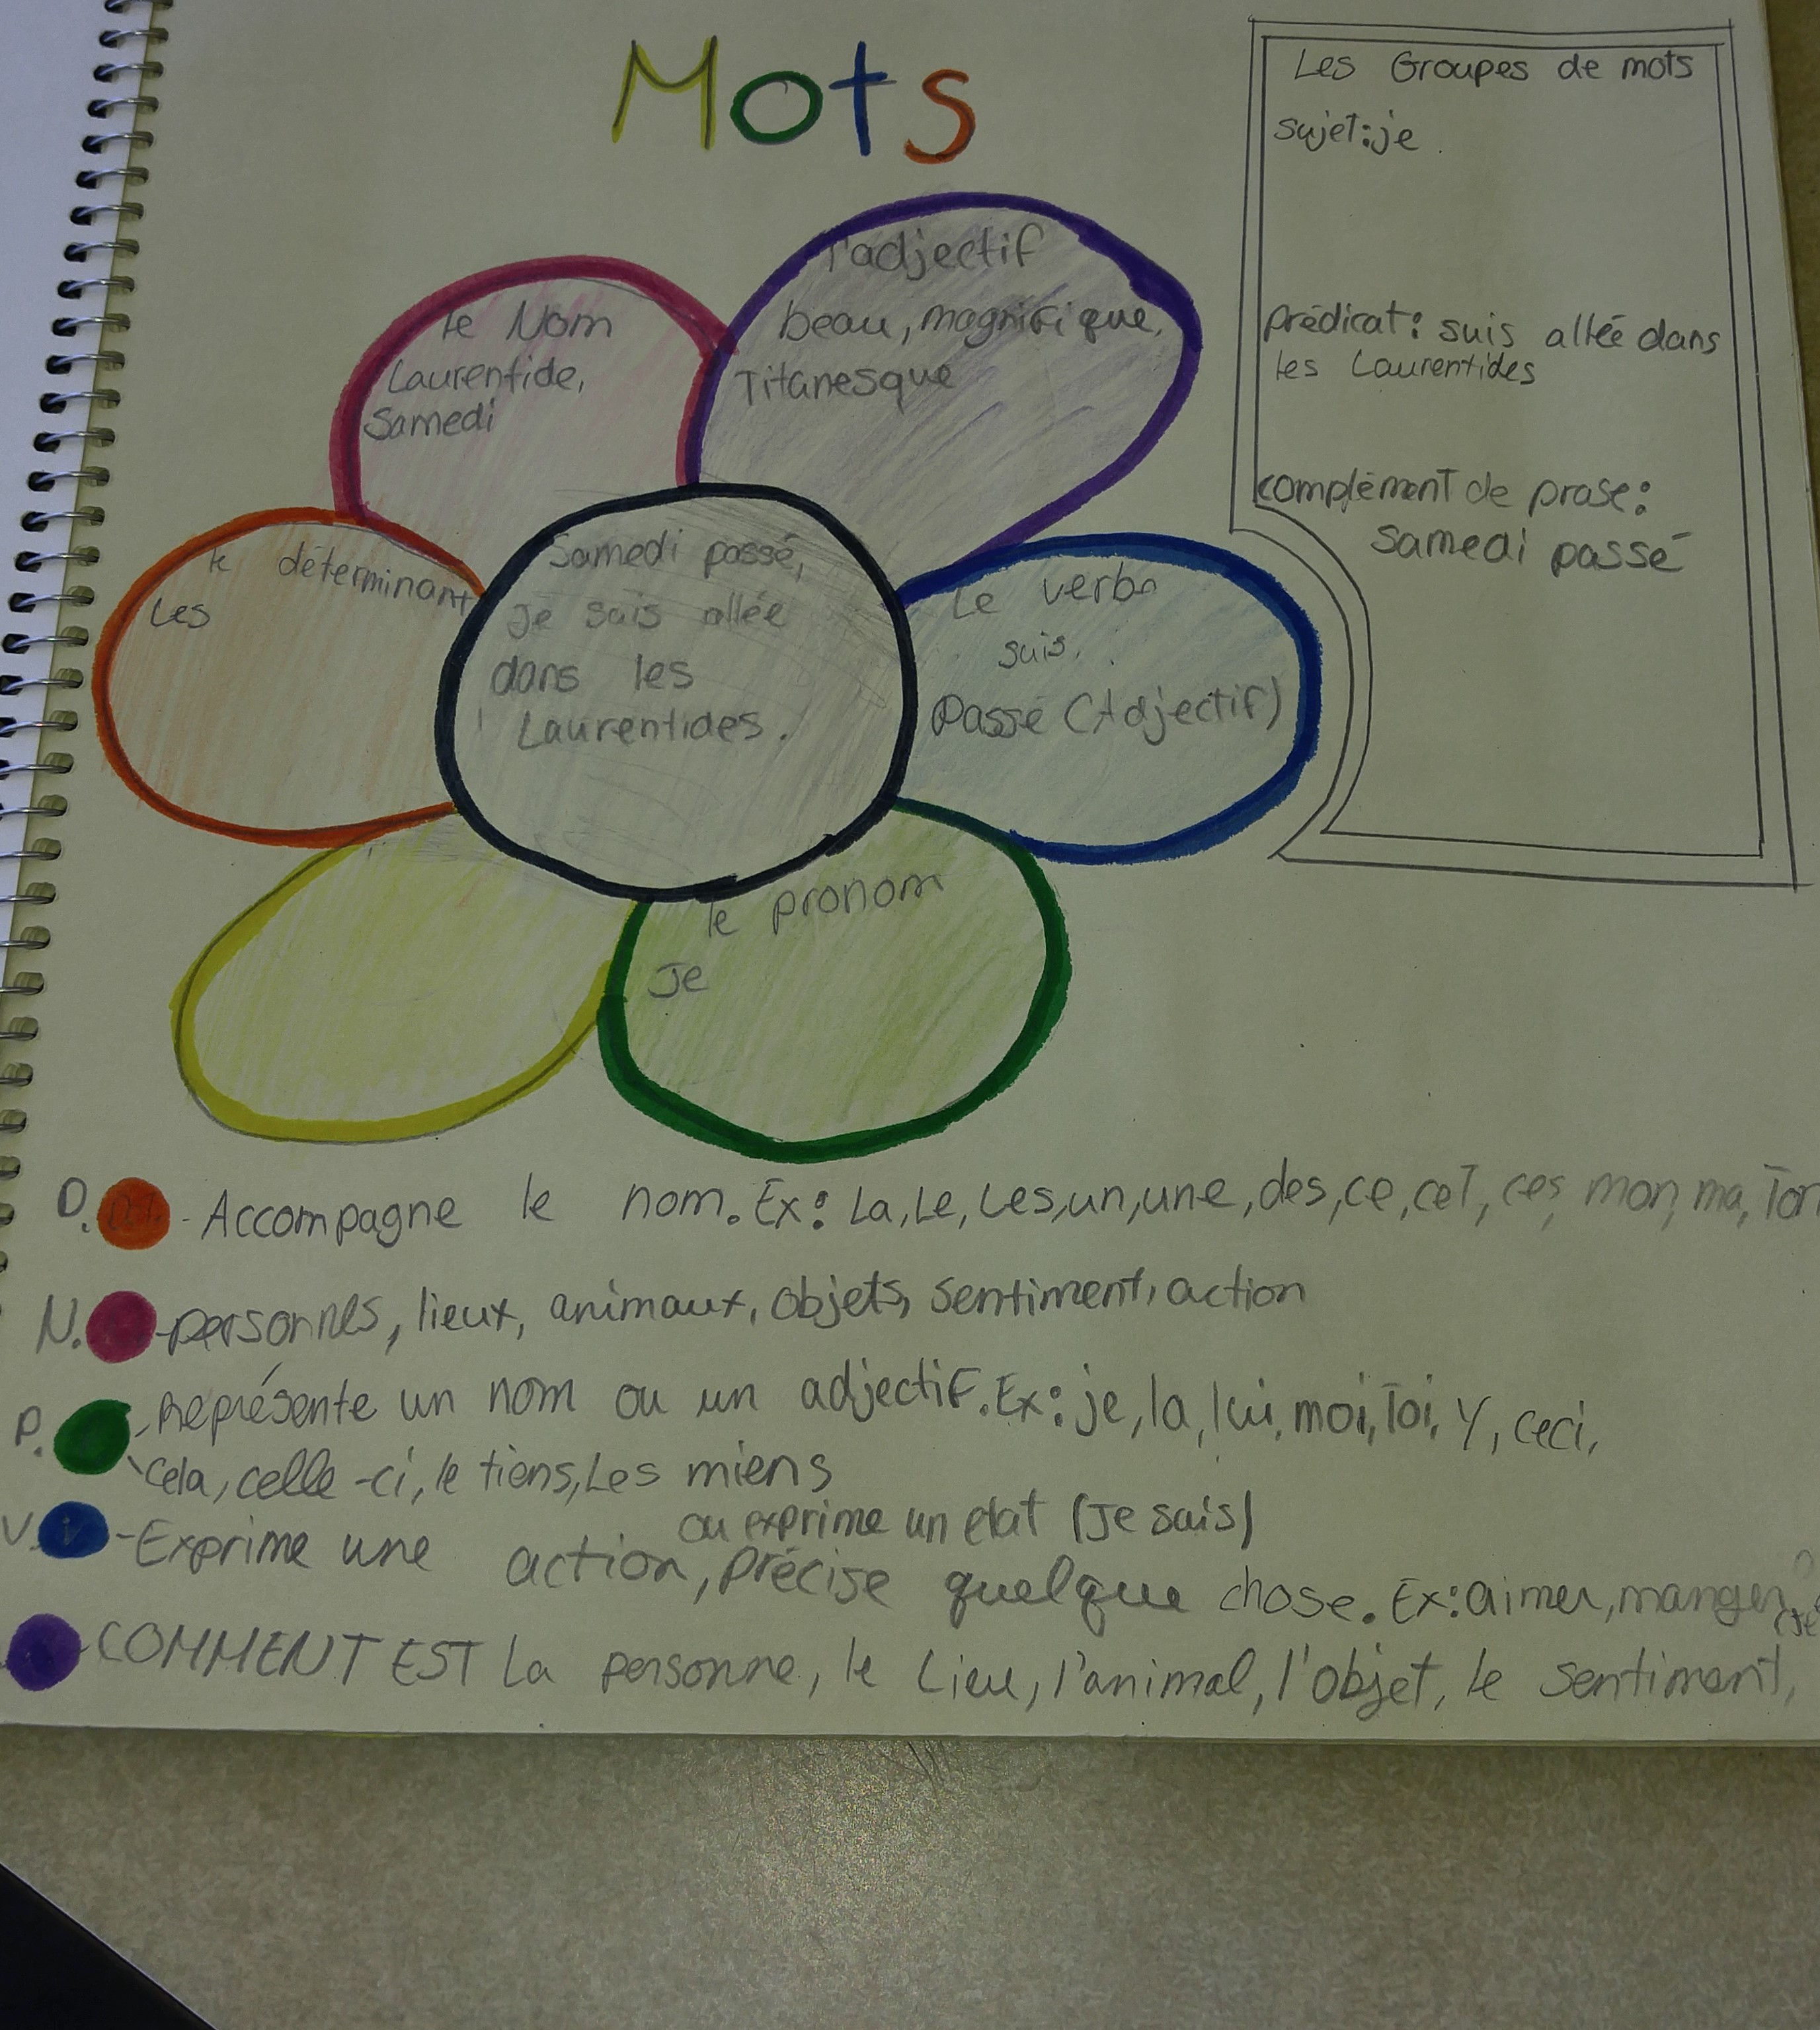 Mots
Les Groupes de mots
sujet:je
prédicat: suis allée dans
les Laurentides
complément de prase:
samedi passé
l'adjectif
beau, magnifique,
Titanesque
le Nom
Laurentide,
Samedi
le déterminant
Les
Samedi passé,
Je suis allée
dans les
Laurentides.
Le verbe
suis.
Passé (Adjectif)
le pronom
Je
D. - Accompagne le nom. Ex: La, Le, Les, un, une, des, ce, cet, ces, mon, ma, Ton
N. - personnes, lieux, animaux, objets, sentiment, action
P. - Représente un nom ou un adjectif. Ex: je, la, lui, moi, Toi, Y, ceci,
cela, celle-ci, le tiens, Les miens
ou exprime un état (Je sais)
V. - Exprime une action, Précise quelque chose. Ex: aimer, manger,
COMMENT EST La personne, le Lieu, l'animal, l'objet, le sentiment,